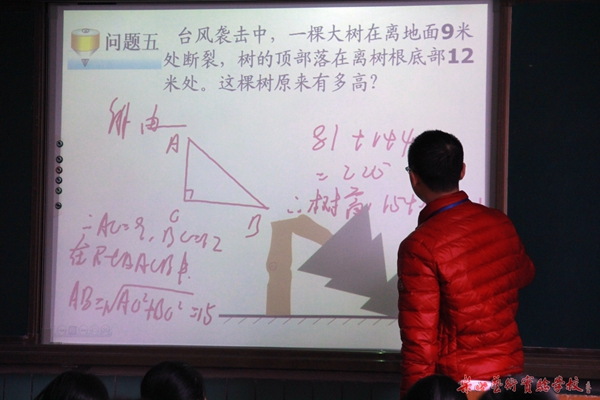 问题五
台风袭击中，一棵大树在离地面9米
处断裂，树的顶部落在离树根底部12
米处。这棵树原来有多高？
解 由
A
C
B
∵AC=9，BC=12
在Rt△ACB中
AB=√AC²+BC²=15
81+144
=225
∴树高 15+
艺术实验学校